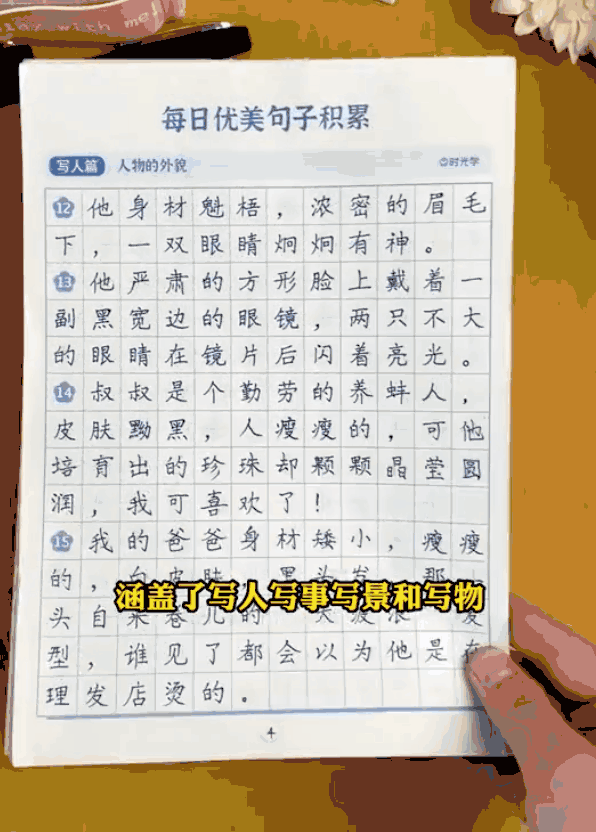 每日优美句子积累
写人篇 人物的外貌 时光学
12 他身材魁梧，浓密的眉毛
下，一双眼睛炯炯有神。
13 他严肃的方形脸上戴着一
副黑宽边的眼镜，两只不大
的眼睛在镜片后闪着亮光。
14 叔叔是个勤劳的养蚌人，
皮肤黝黑，人瘦瘦的，可他
培育出的珍珠却颗颗晶莹圆
润，我可喜欢了！
15 我的爸爸身材矮小，瘦瘦
的，
涵盖了写人写事写景和写物
头自来卷儿的
型，谁见了都会以为他是在
理发店烫的。
4